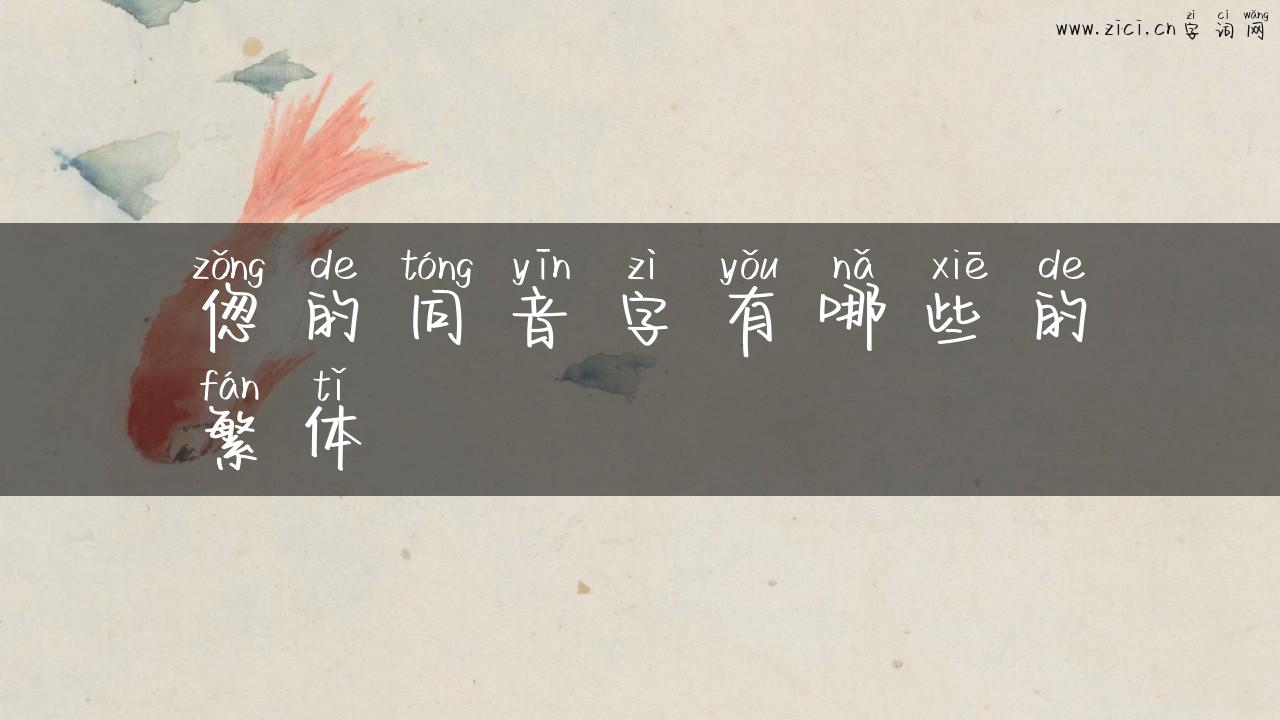 www.zici.cn zì cí wǎng
字词网
zǒng de tóng yīn zì yǒu nǎ xiē de
偬的同音字有哪些的
fán tǐ
繁体